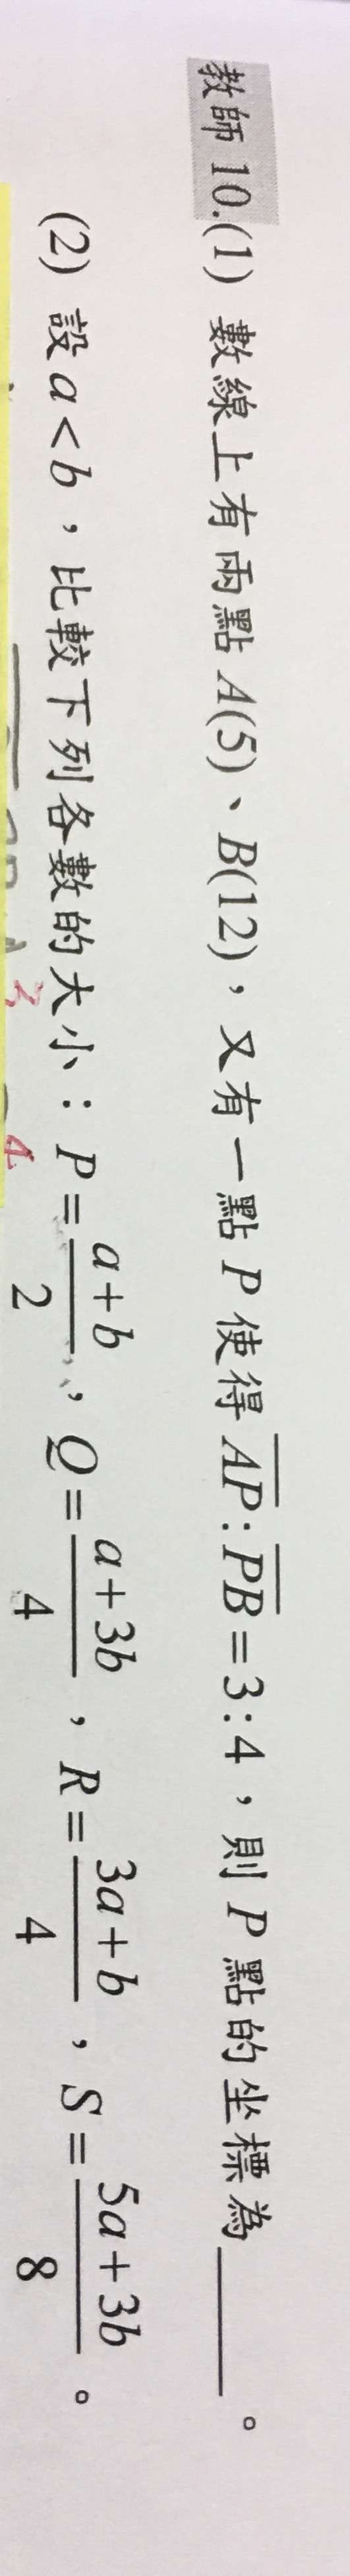 教師 10.(1) 數線上有兩點 A(5)、B(12)，又有一點 P 使得 \overline{AP}:\overline{PB}=3:4，則 P 點的坐標為______。
(2) 設 a<b，比較下列各數的大小：P=\frac{a+b}{2}，Q=\frac{a+3b}{4}，R=\frac{3a+b}{4}，S=\frac{5a+3b}{8}。